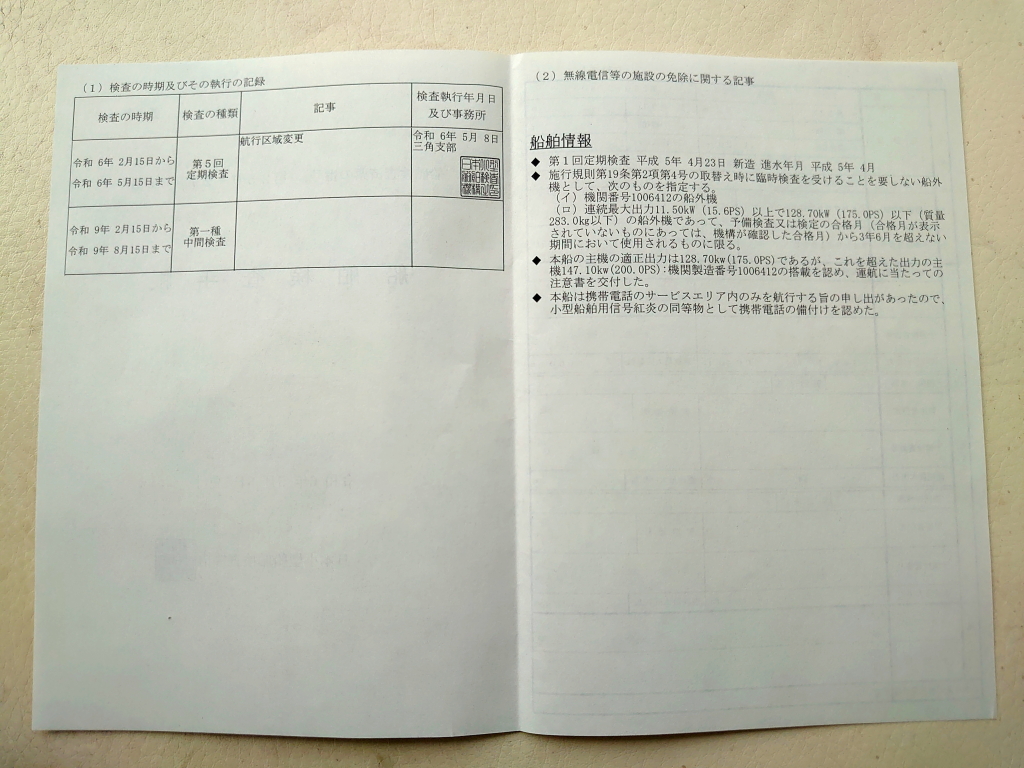 (1) 検査の時期及びその執行の記録
検査の時期 検査の種類 記事 検査執行年月日及び事務所
令和 6年 2月15日から
令和 6年 5月15日まで
第5回
定期検査
航行区域変更
令和 6年 5月 8日
三角支部
令和 9年 2月15日から
令和 9年 8月15日まで
第一種
中間検査
(2) 無線電信等の施設の免除に関する記事
船舶情報
◆ 第1回定期検査 平成 5年 4月23日 新造 進水年月 平成 5年 4月
◆ 施行規則第19条第2項第4号の取替え時に臨時検査を受けることを要しない船外
機として、次のものを指定する。
(イ) 機関番号1006412の船外機
(ロ) 連続最大出力11.50kW (15.6PS) 以上で128.70kW (175.0PS) 以下 (質量
283.0kg以下) の船外機であって、予備検査又は検定の合格月 (合格月が表示
されていないものにあっては、機構が確認した合格月) から3年6月を超えない
期間において使用されるものに限る。
◆ 本船の主機の適正出力は128.70kw(175.0PS)であるが、これを超えた出力の主
機147.10kw(200.0PS):機関製造番号1006412の搭載を認め、運航に当たっての
注意書を交付した。
◆ 本船は携帯電話のサービスエリア内のみを航行する旨の申し出があったので、
小型船舶用信号紅炎の同等物として携帯電話の備付けを認めた。